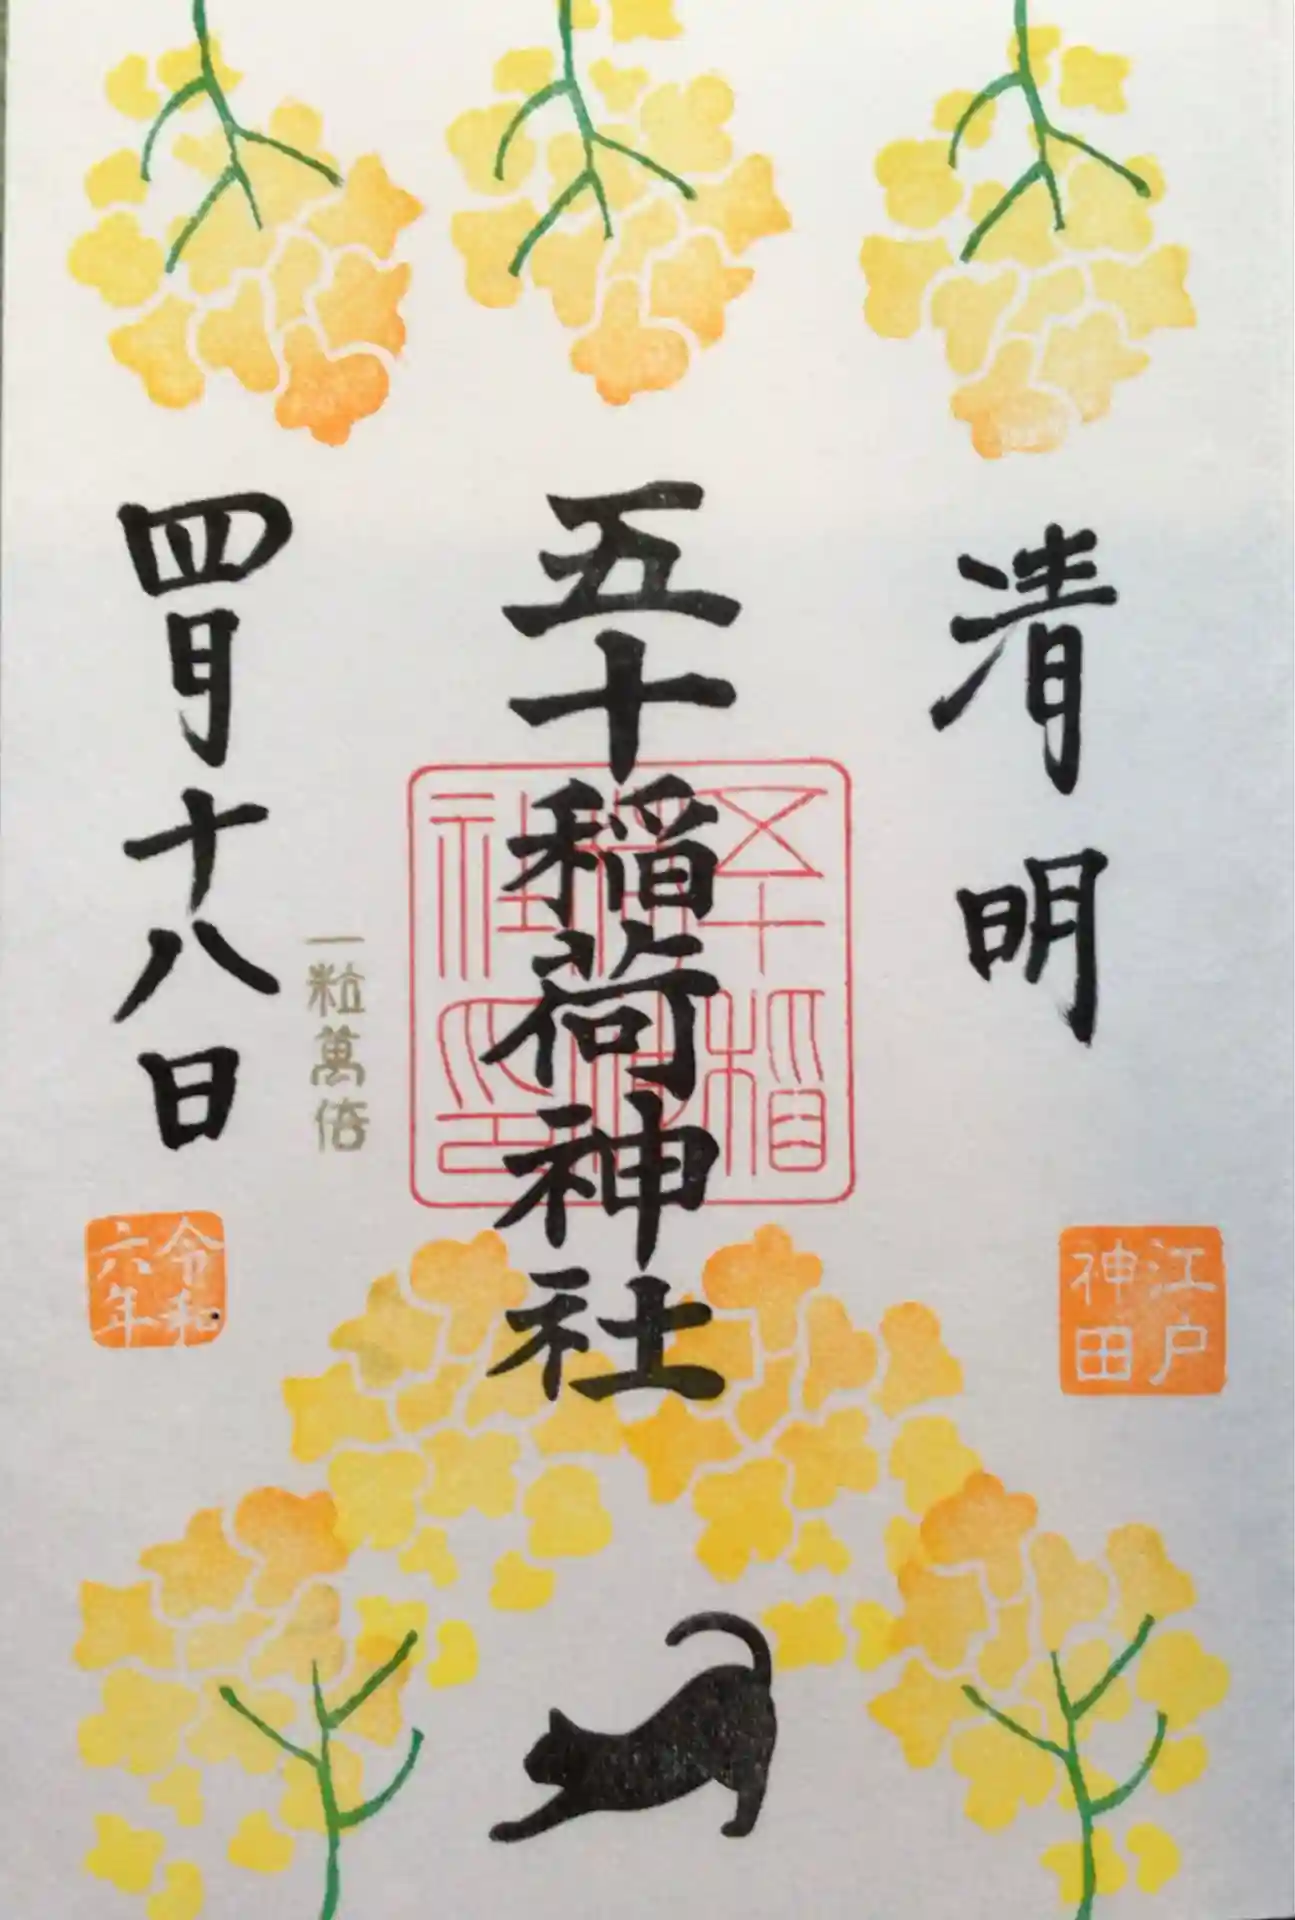 清明
江戸
神田
五十稲荷神社
五十稲
荷神
社印
一粒萬倍
四月十八日
令和
六年